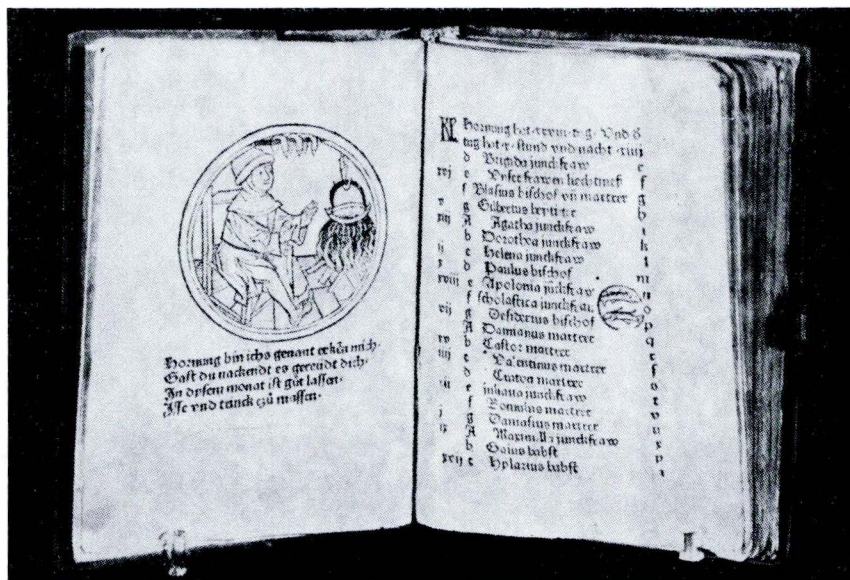 Hornung bin ichs genant erken mich·
Gast du nackendt es gereudt dich·
In dysem monat ist gůt lassen·
Isse vnd trinck zů massen·
KL Hornung hat·xxviii·tag·Vnd d
tag hat·x·stund vnd nacht·xiiij
d Brigida junckfraw e
xvj e Vnser frawen liechtmeß f
f Blasius bischof vn marterer g
v g Gilbertus h
xiij A Agatha junckfraw i
b Dorothea junckfraw k
ij c Helena junckfraw l
x d Paulus bischof m
xviij e Apolonia junckfraw n
f scholastica junckfrau o
vij g Desiderius bischof p
A Damianus marterer q
xv b Castor marterer r
iiij c Valentinus marterer s
d marterer s
xij e juliana junckfraw t
f marterer v
j g Damasius marterer u
ix A junckfraw x
b Gaius babst y
xvij c Hylarius babst